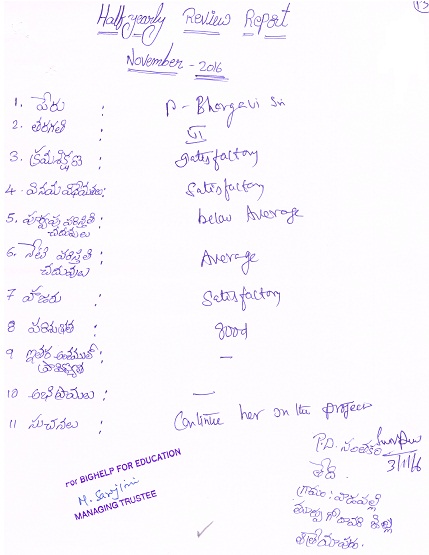 13
Half yearly Review Report
November - 2016
1. పేరు : P - Bhargavi Sri
2. తరగతి : VI
3. క్రమశిక్షణ : Satisfactory
4. వినయ విధేయతలు: Satisfactory
5. పూర్వపు పరిస్థితి : below Average
చదువులు
6. నేటి పరిస్థితి : Average
చదువులు
7 హాజరు : Satisfactory
8 పరిశుభ్రత : good
9 ఇతర అంశములలో : —
ప్రావీణ్యత
10 అభిప్రాయాలు : —
11 సూచనలు : Continue her on the project
For BIGHELP FOR EDUCATION
M. Sarojini
MANAGING TRUSTEE
P.D. సంతకం
3/11/16
తేది
గ్రామం :
తూర్పు గోదావరి జిల్లా